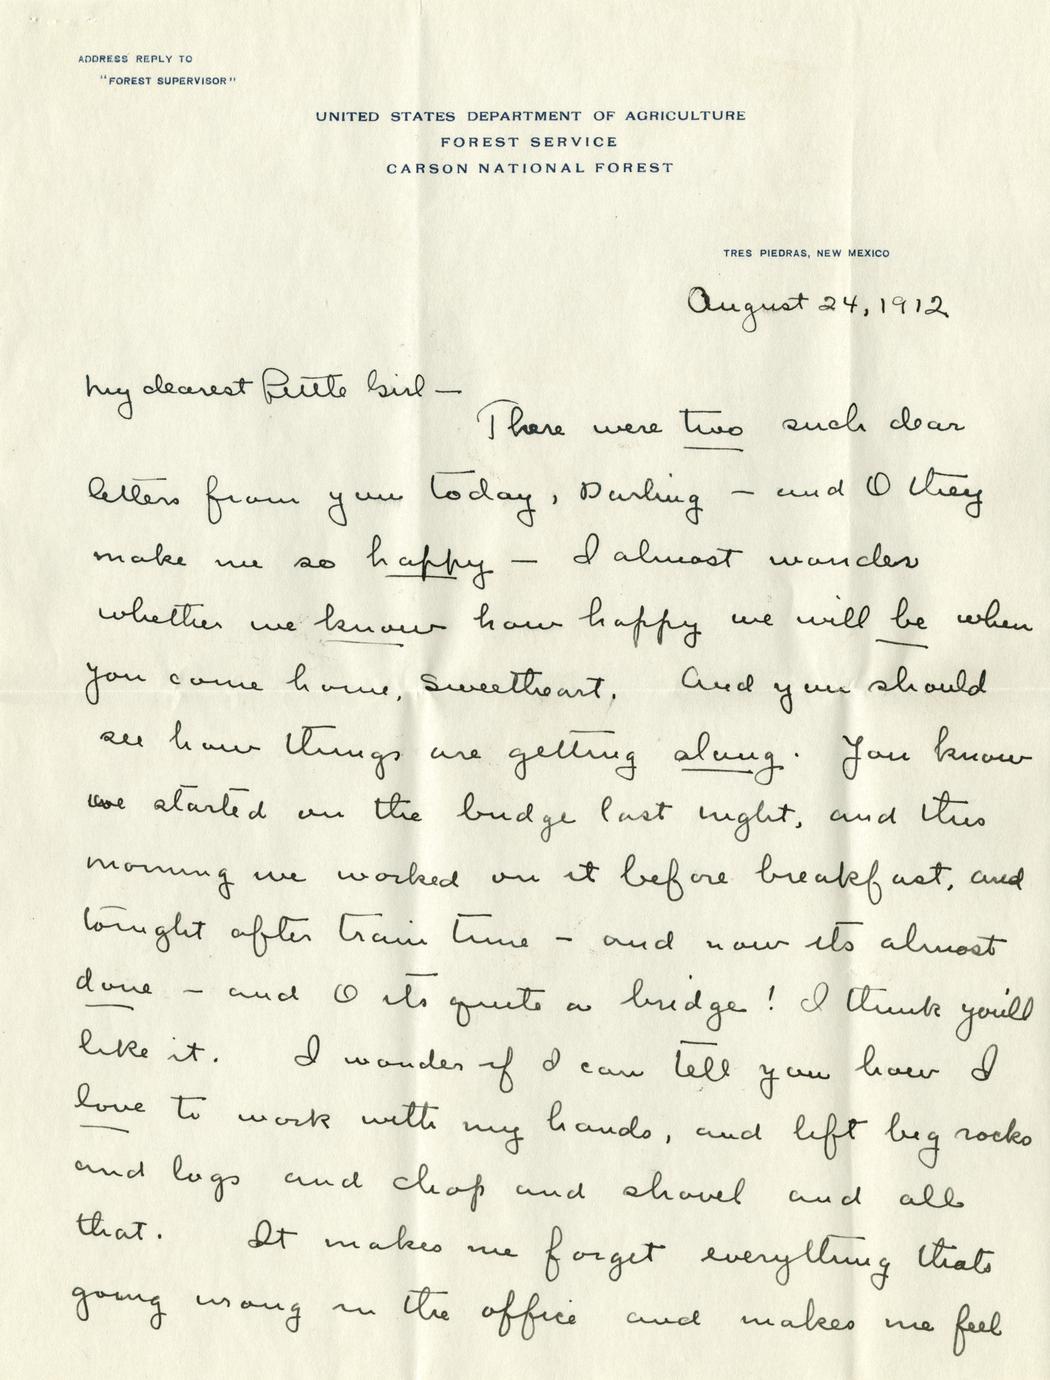 ADDRESS REPLY TO
"FOREST SUPERVISOR"
UNITED STATES DEPARTMENT OF AGRICULTURE
FOREST SERVICE
CARSON NATIONAL FOREST
TRES PIEDRAS, NEW MEXICO
August 24, 1912
My dearest Little Girl —
There were two such dear
letters from you today, Darling – and O they
make me so happy – I almost wonder
whether we know how happy we will be when
you come home, Sweetheart. And you should
see how things are getting along. You know
we started on the bridge last night, and this
morning we worked on it before breakfast, and
tonight after train time – and now its almost
done – and O its quite a bridge! I think you'll
like it. I wonder if I can tell you how I
love to work with my hands, and lift big rocks
and logs and chop and shovel and all
that. It makes me forget everything thats
going wrong in the office and makes me feel